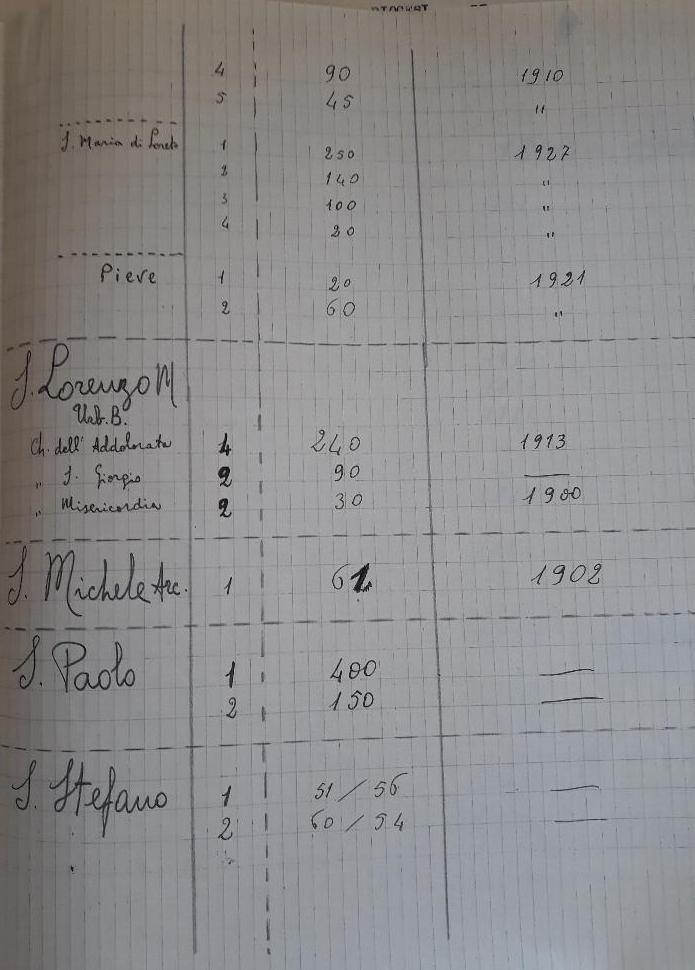 4 90 1910
5 45 "
S. Maria di Loreto 1 250 1927
2 140 "
3 100 "
4 20 "
Pieve 1 20 1921
2 60 "
S. Lorenzo M
Urb. B.
Ch. dell' Addolorata 1 240 1913
" S. Giorgio 2 90 —
" Misericordia 2 30 1900
S. Michele Arc. 1 61 1902
S. Paolo 1 400 —
2 150 —
S. Stefano 1 51 / 56 —
2 60 / 54 —